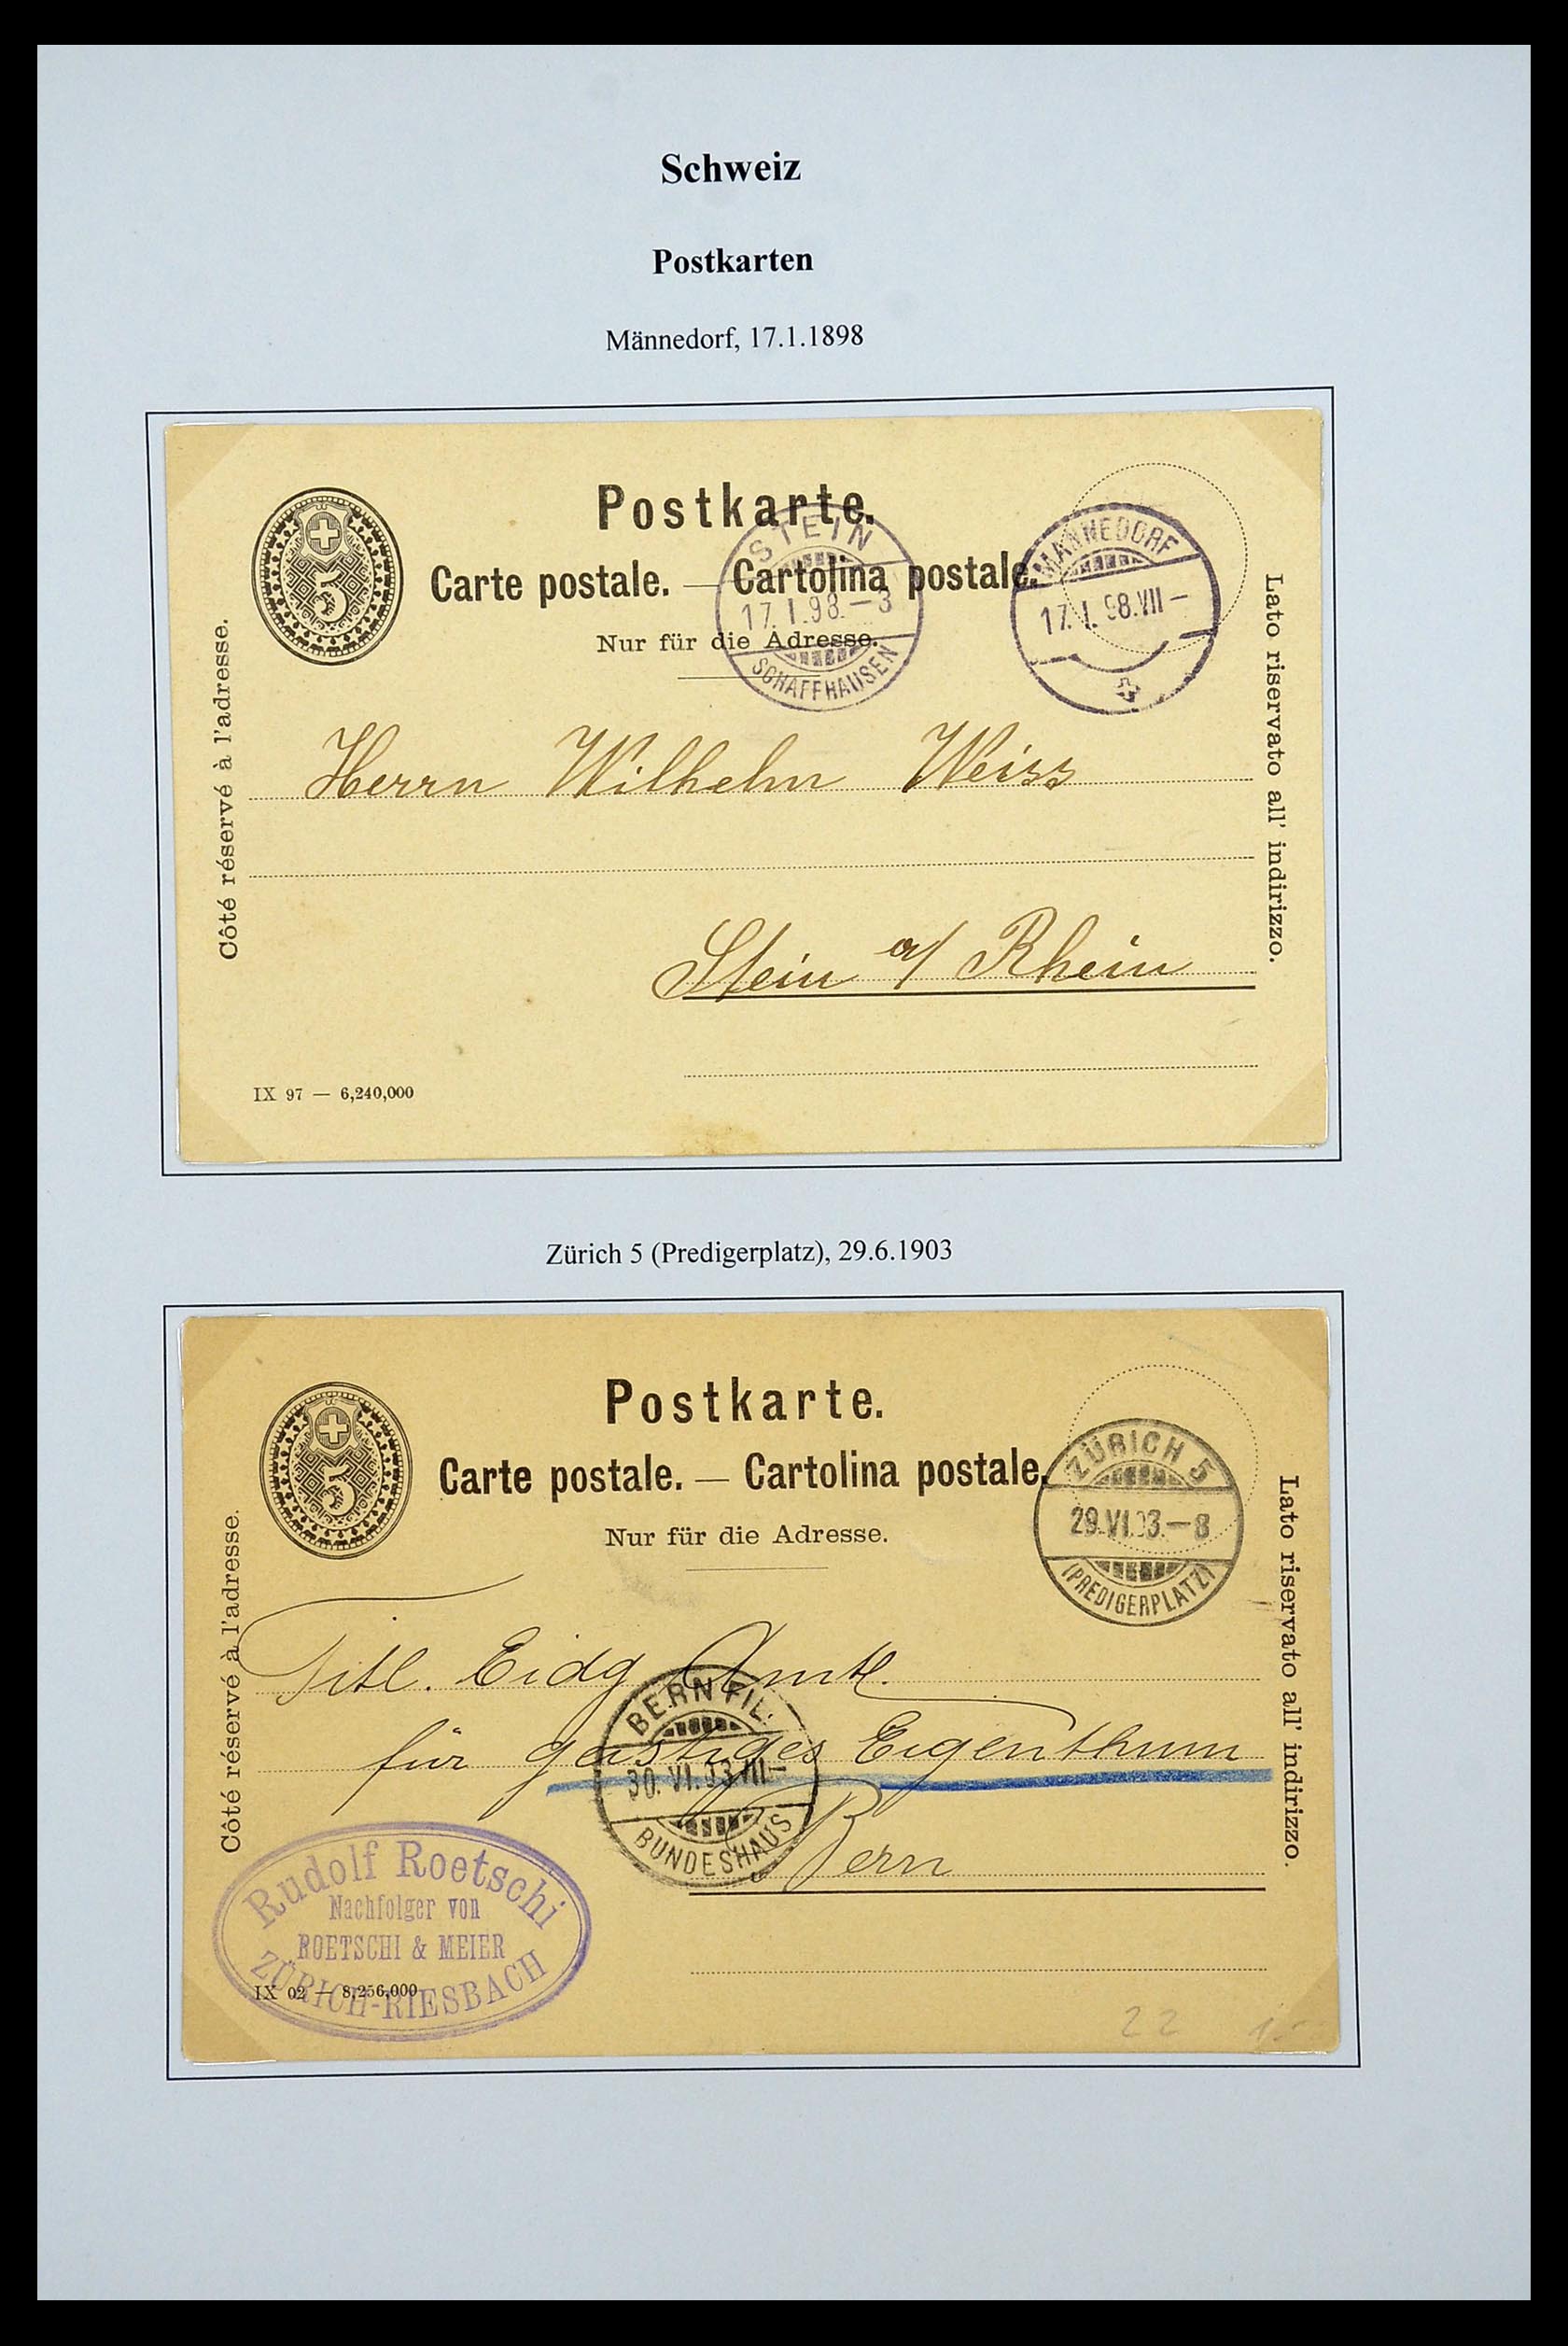 Schweiz
Postkarten
Männedorf, 17.1.1898
5
Postkarte.
Carte postale. — Cartolina postale.
Nur für die Adresse.
STEIN
17.I.98.–3
SCHAFFHAUSEN
MÄNNEDORF
17.I.98.VII–
Côté réservé à l'adresse.
Lato riservato all' indirizzo.
Herrn Wilhelm Weiss
Stein a/ Rhein
IX 97 — 6,240,000
Zürich 5 (Predigerplatz), 29.6.1903
5
Postkarte.
Carte postale. — Cartolina postale.
Nur für die Adresse.
ZÜRICH 5
29.VI.03.–8
(PREDIGERPLATZ)
Côté réservé à l'adresse.
Lato riservato all' indirizzo.
Titl. Eidg. Amt
für geistiges Eigenthum
Bern
BERN FIL.
30.VI.03.VII–
BUNDESHAUS
Rudolf Roetschi
Nachfolger von
ROETSCHI & MEIER
ZÜRICH-RIESBACH
IX 02 — 8,256,000
22 1.-